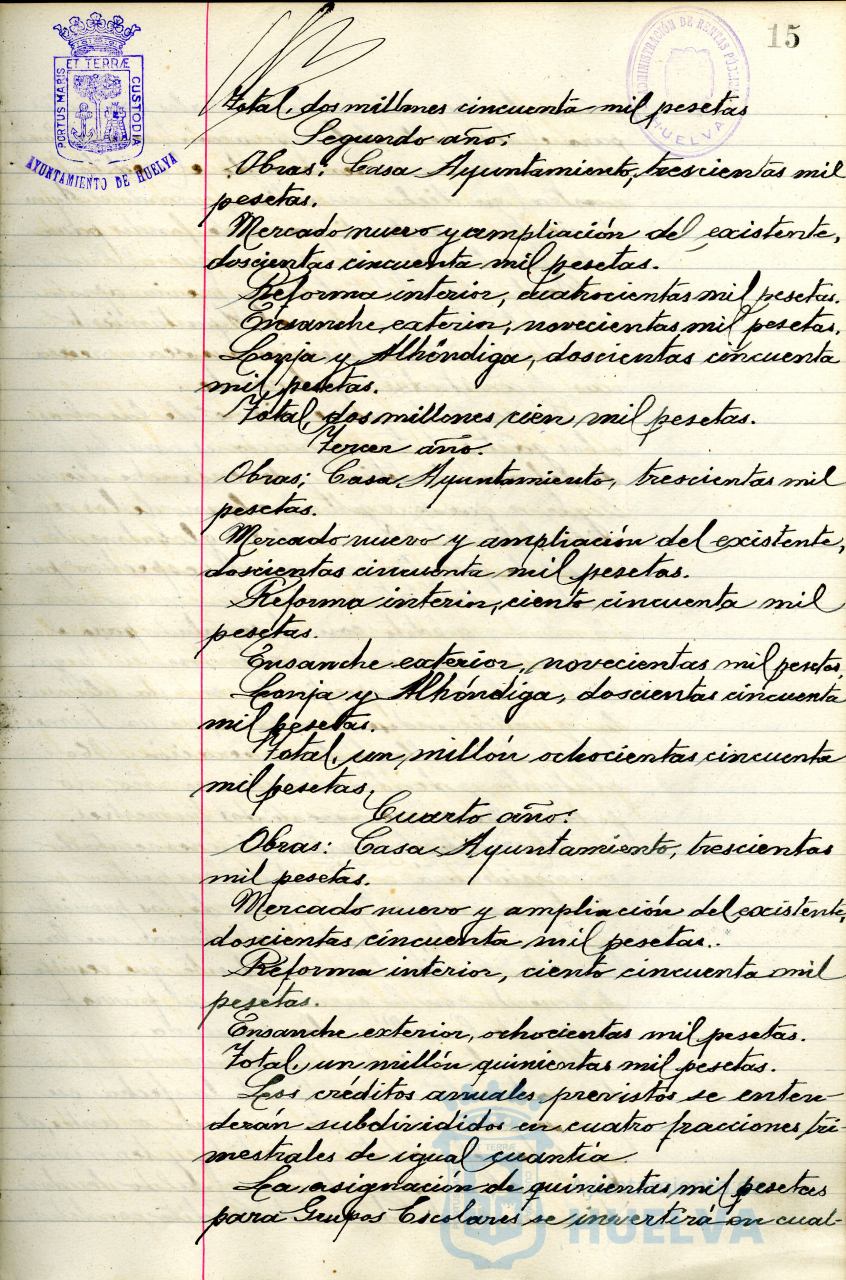 15
PORTUS MARIS
ET TERRÆ
CUSTODIA
AYUNTAMIENTO DE HUELVA
ADMINISTRACIÓN DE RENTAS PÚBLICAS
HUELVA
Total, dos millones cincuenta mil pesetas
Segundo año:
Obras: Casa Ayuntamiento, trescientas mil
pesetas.
Mercado nuevo y ampliación del existente,
doscientas cincuenta mil pesetas.
Reforma interior, cuatrocientas mil pesetas.
Ensanche exterior, novecientas mil pesetas.
Lonja y Alhóndiga, doscientas cincuenta
mil pesetas.
Total, dos millones cien mil pesetas.
Tercer año.
Obras; Casa Ayuntamiento, trescientas mil
pesetas.
Mercado nuevo y ampliación del existente,
doscientas cincuenta mil pesetas.
Reforma interior, ciento cincuenta mil
pesetas.
Ensanche exterior, novecientas mil pesetas,
Lonja y Alhóndiga, doscientas cincuenta
mil pesetas.
Total, un millón ochocientas cincuenta
mil pesetas,
Cuarto año:
Obras: Casa Ayuntamiento, trescientas
mil pesetas.
Mercado nuevo y ampliación del existente,
doscientas cincuenta mil pesetas..
Reforma interior, ciento cincuenta mil
pesetas.
Ensanche exterior, ochocientas mil pesetas.
Total, un millón quinientas mil pesetas.
Los créditos anuales previstos se enten-
derán subdivididos en cuatro fracciones tri-
mestrales de igual cuantía.
La asignación de quinientas mil pesetas
para Grupos Escolares se invertirá en cual-
HUELVA